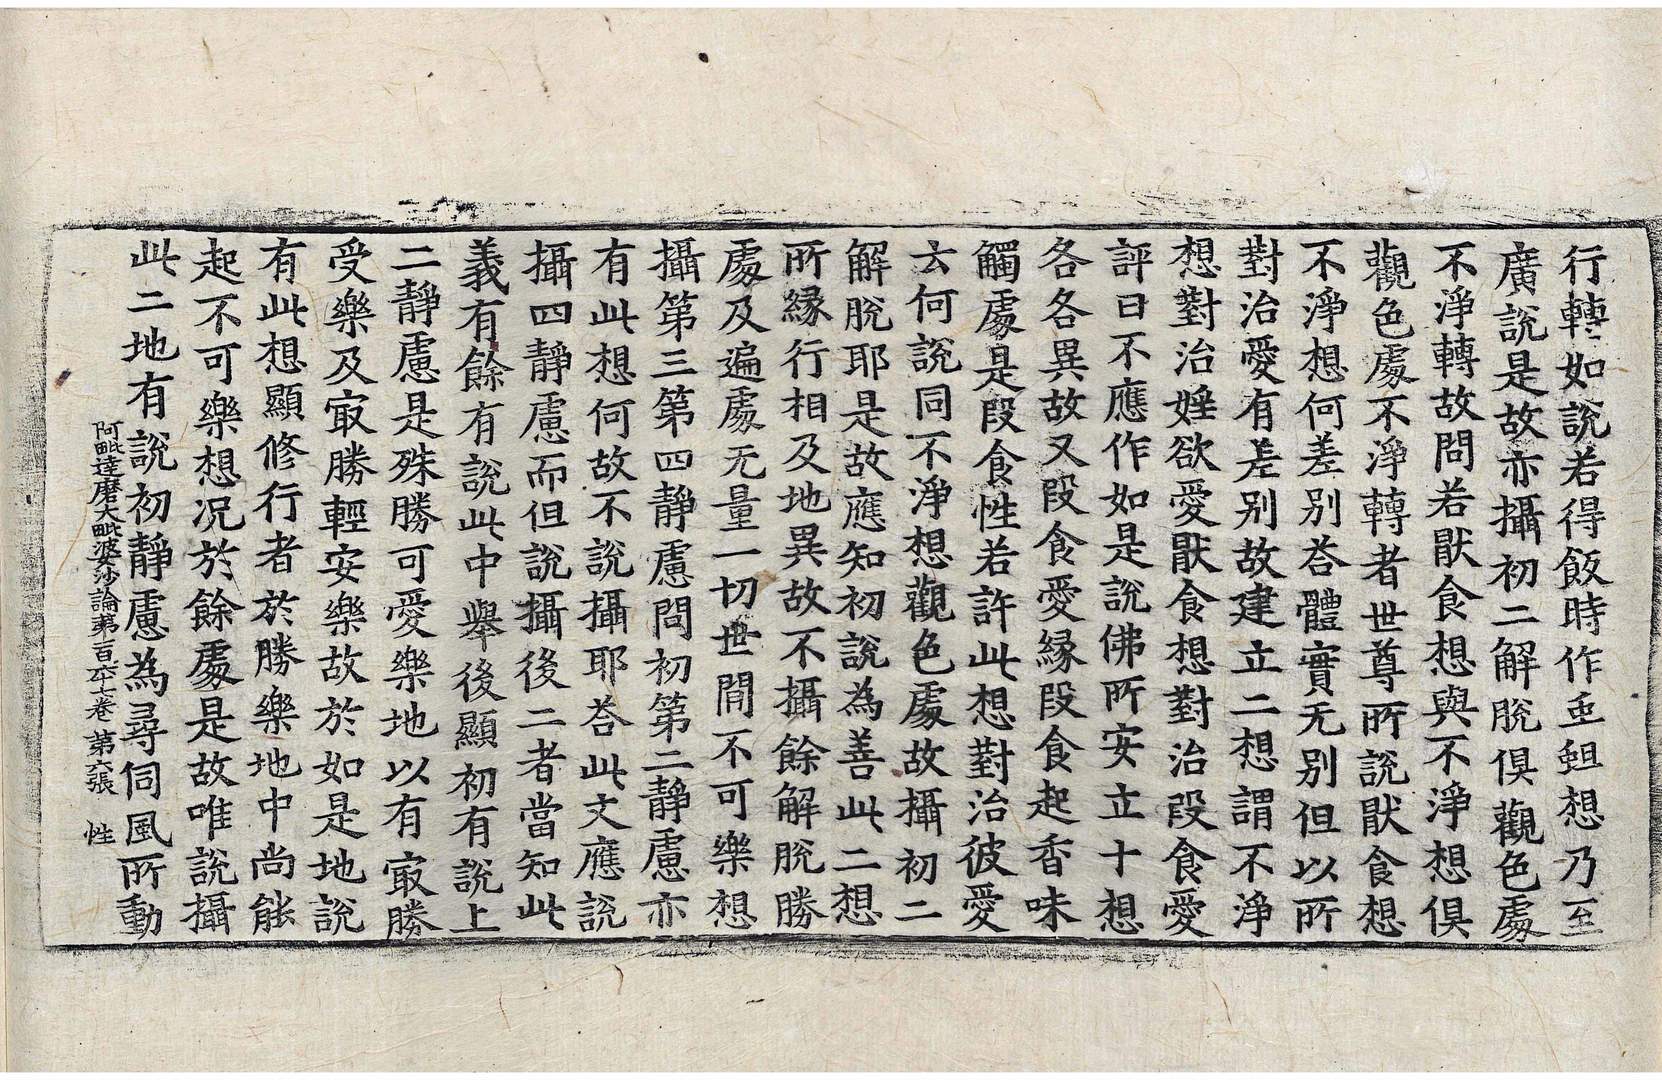 行轉如說若得飯時作䖝蛆想乃至
廣說是故亦攝初二解脫俱觀色處
不淨轉故問若猒食想與不淨想俱
觀色處不淨轉者世尊所說猒食想
不淨想何差別荅體實无別但以所
對治愛有差別故建立二想謂不淨
想對治婬欲愛猒食想對治段食愛
評曰不應作如是說佛所安立十想
各各異故又段食愛緣段食起香味
觸處是段食性若許此想對治彼愛
云何說同不淨想觀色處故攝初二
解脫耶是故應知初說為善此二想
所緣行相及地異故不攝餘解脫勝
處及遍處无量一切世間不可樂想
攝第三第四靜慮問初第二靜慮亦
有此想何故不說攝耶荅此文應說
攝四靜慮而但說攝後二者當知此
義有餘有說此中舉後顯初有說上
二靜慮是殊勝可愛樂地以有㝡勝
受樂及㝡勝輕安樂故於如是地說
有此想顯修行者於勝樂地中尚能
起不可樂想况於餘處是故唯說攝
此二地有說初靜慮為尋伺風所動
阿毗達磨大毗婆沙論第百六十七卷 第六張 性